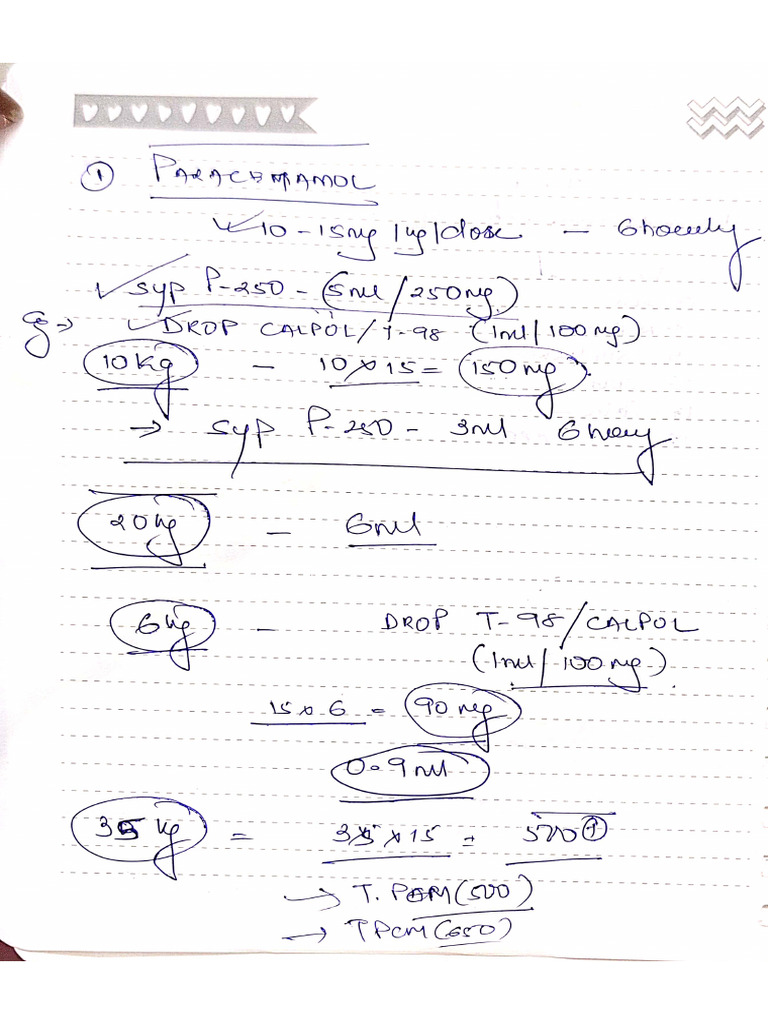 ① PARACETAMOL
✓10-15mg/kg/dose - 6 hourly
✓ Syp P-250 - (5ml/250mg)
eg → ✓ DROP CALPOL/T-98 (1ml/100mg)
10kg - 10 x 15 = 150mg.
→ Syp P-250 - 3ml 6 hrly
20kg - 6ml
6kg - DROP T-98/CALPOL
(1ml/100mg).
15 x 6 = 90mg
0.9ml
35kg = 35 x 15 = 500↑
→ T. PCM (500)
→ T PCM (650)